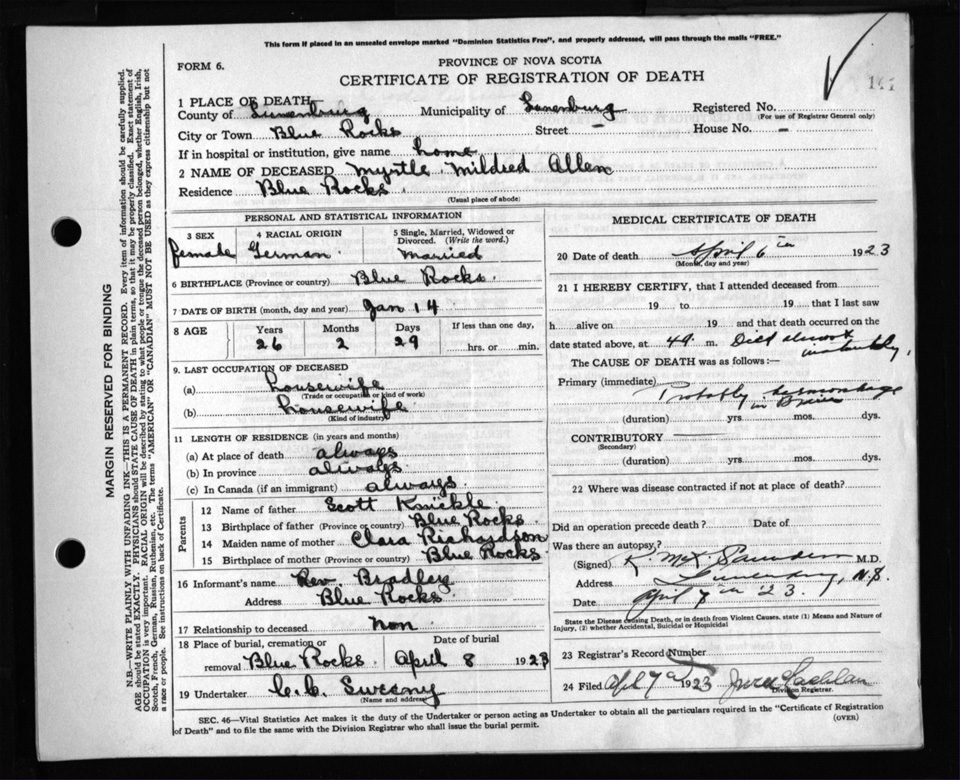 This form if placed in an unsealed envelope marked "Dominion Statistics Free", and properly addressed, will pass through the mails "FREE."
FORM 6.
PROVINCE OF NOVA SCOTIA
CERTIFICATE OF REGISTRATION OF DEATH
1 PLACE OF DEATH
County of Lunenburg Municipality of Lunenburg Registered No.
(For use of Registrar General only)
City or Town Blue Rocks Street - House No. -
If in hospital or institution, give name home
2 NAME OF DECEASED Myrtle Mildred Allen
Residence Blue Rocks
(Usual place of abode)
PERSONAL AND STATISTICAL INFORMATION
3 SEX 4 RACIAL ORIGIN 5 Single, Married, Widowed or Divorced. (Write the word.)
female German married
6 BIRTHPLACE (Province or country) Blue Rocks
7 DATE OF BIRTH (month, day and year) Jan 14
8 AGE Years Months Days If less than one day,
26 2 29 hrs. or min.
9. LAST OCCUPATION OF DECEASED
(a) housewife
(Trade or occupation or kind of work)
(b) housewife
(Kind of industry)
11 LENGTH OF RESIDENCE (in years and months)
(a) At place of death always
(b) In province always
(c) In Canada (if an immigrant) always
Parents
12 Name of father Scott Knickle
13 Birthplace of father (Province or country) Blue Rocks
14 Maiden name of mother Clara Richardson
15 Birthplace of mother (Province or country) Blue Rocks
16 Informant's name Rev. Bradley
Address Blue Rocks
17 Relationship to deceased non
18 Place of burial, cremation or Date of burial
removal Blue Rocks April 8 1923
19 Undertaker C.C. Sweeny
(Name and address)
MEDICAL CERTIFICATE OF DEATH
20 Date of death April 6th 1923
(Month, day and year)
21 I HEREBY CERTIFY, that I attended deceased from
19 to 19 that I last saw
h alive on 19 and that death occurred on the
date stated above, at m. Died almost
The CAUSE OF DEATH was as follows:—
Primary (immediate) Probably hemorrhage
in Brain
(duration) yrs. mos. dys.
CONTRIBUTORY
(Secondary)
(duration) yrs. mos. dys.
22 Where was disease contracted if not at place of death?
Did an operation precede death? Date of
Was there an autopsy?
(Signed) Saunders M.D.
Address Lunenburg, N.S.
Date April 7th '23
State the Disease causing Death, or in death from Violent Causes, state (1) Means and Nature of
Injury, (2) whether Accidental, Suicidal or Homicidal
23 Registrar's Record Number
24 Filed April 7 1923
Division Registrar.
SEC. 46—Vital Statistics Act makes it the duty of the Undertaker or person acting as Undertaker to obtain all the particulars required in the "Certificate of Registration
of Death" and to file the same with the Division Registrar who shall issue the burial permit.
(OVER)
MARGIN RESERVED FOR BINDING
N.B.—WRITE PLAINLY WITH UNFADING INK—THIS IS A PERMANENT RECORD. Every item of information should be carefully supplied.
AGE should be stated EXACTLY. PHYSICIANS should STATE CAUSE OF DEATH in plain terms, so that it may be properly classified. Exact statement of
OCCUPATION is very important. RACIAL ORIGIN will be described by stating to what people or tongue the deceased person belonged, whether English, Irish,
Scotch, French, German, Russian, Ruthenian, etc. The terms "AMERICAN" OR "CANADIAN" MUST NOT BE USED as they express citizenship but not
a race or people. See instructions on back of Certificate.